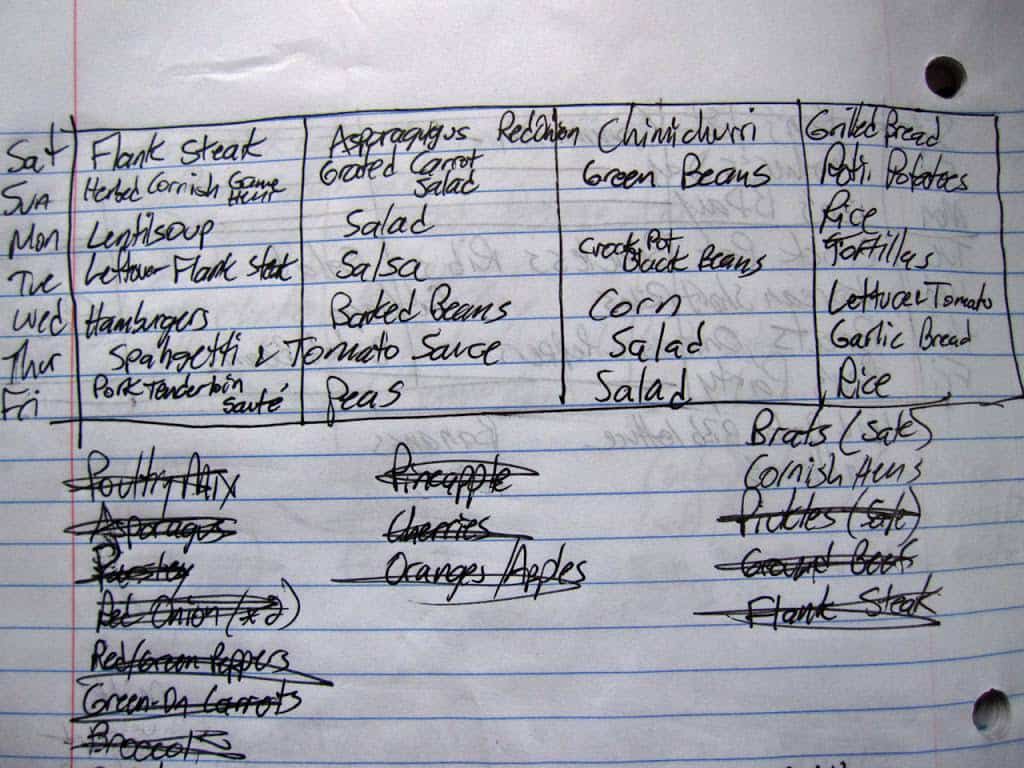 Sat Flank Steak Asparagugus Red Onion Chimichurri Grilled Bread
Sun Herbed Cornish Game Hen Grated Carrot Salad Green Beans Potatoes
Mon Lentilsoup Salad Rice
Tue Leftover Flank Steak Salsa Crock Pot Black Beans Tortillas
Wed Hamburgers Baked Beans Corn Lettuce & Tomato
Thur Spahgetti & Tomato Sauce Salad Garlic Bread
Fri Pork Tenderloin Sauté Peas Salad Rice
Brats (Sale)
Poultry Mix Pineapple Cornish Hens
Asparagus Cherries Pickles (Sale)
Parsley Oranges/Apples Ground Beef
Red Onion (x2) Flank Steak
Red/Green Peppers
Green-On Carrots
Broccoli